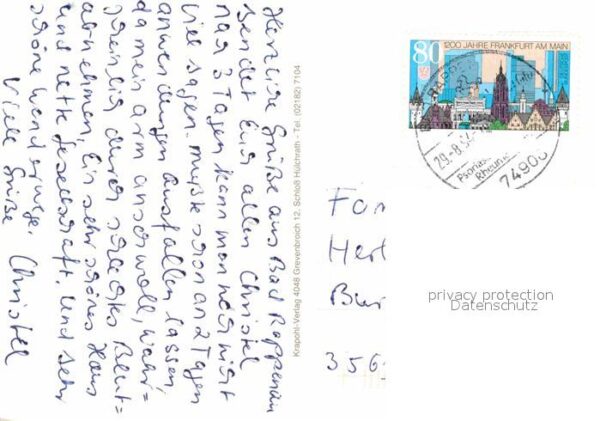 Herzliche Grüße aus Bad Rappenau
sendet Euch allen Christel
nach 3 Tagen kann man noch nicht
viel sagen. mußte schon an 2 Tagen
anwendungen ausfallen lassen,
da mein arm anschwoll, wahr=
scheinlich durch schlechtes Blut=
abnehmen. Ein sehr schönes Haus
und nette Gesellschaft. und sehr
schöne wanderwege
Viele Grüße Christel
Krapohl-Verlag 4048 Grevenbroich 12, Schloß Hülchrath - Tel. (02182) 7104
80
1200 JAHRE FRANKFURT AM MAIN
29.-8.9
Psorias
Rheuma
74906
Fam
Her
Bur
356
privacy protection
Datenschutz